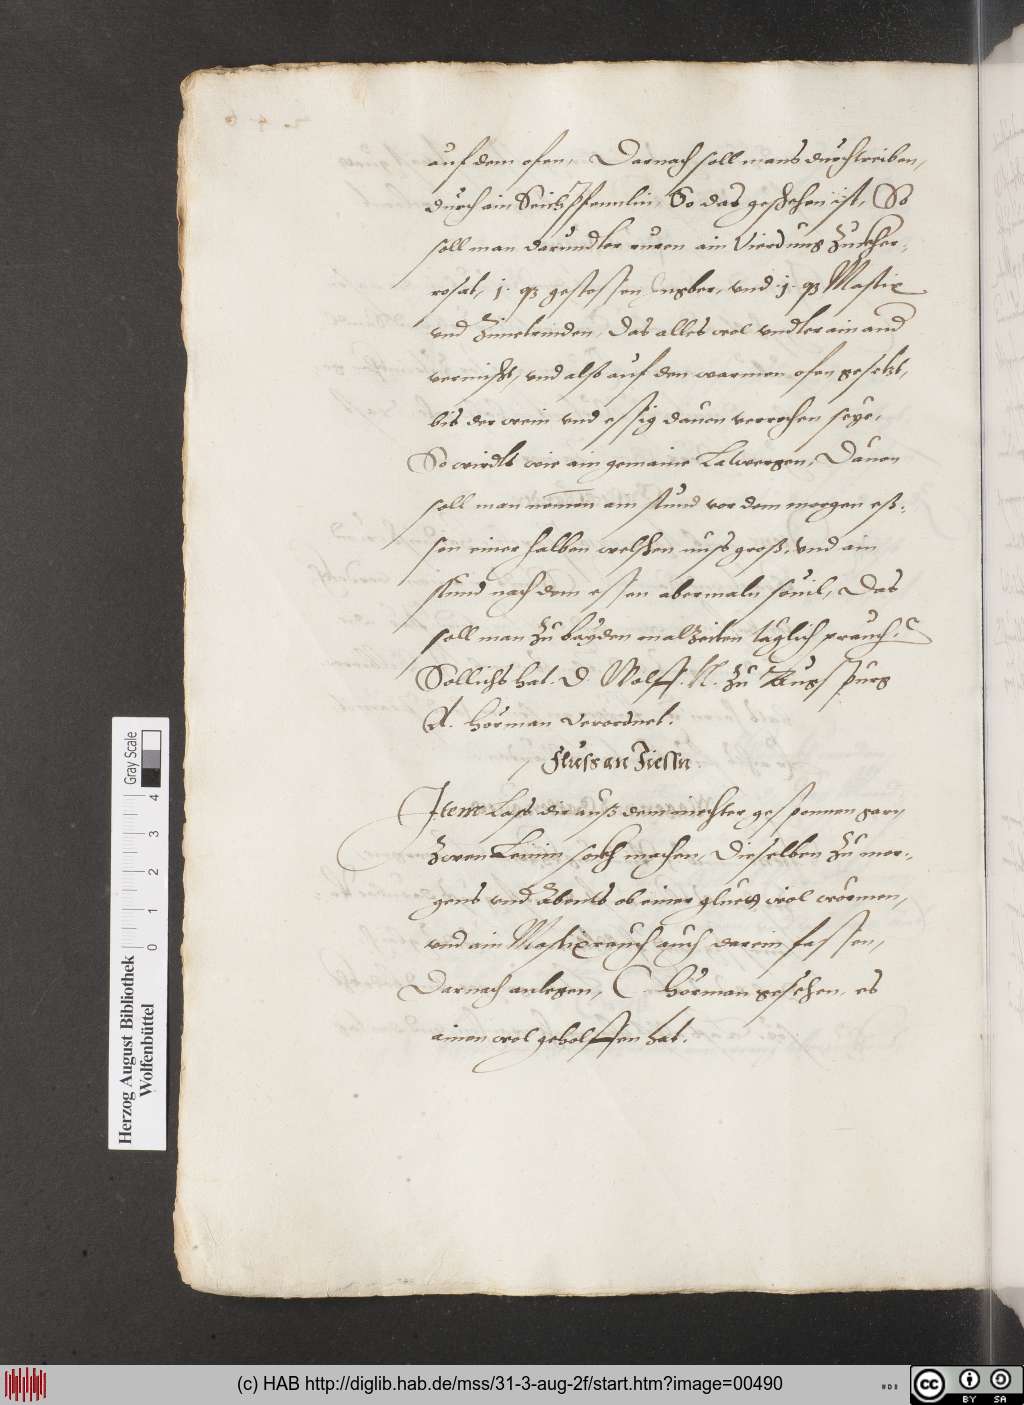 auf dem ofen, Darnach soll mans durchtreiben,
durch ain Seichpfennlin, So das geschehen ist, So
soll man darundter rüren ain Vierdung Zuckher-
rosat, j. gestossen Ingber, vnd j. Mastix
vnd Zimetrinden, Das alles wol vndter ain and
vermischt, vnd alß auf den warmen ofen gesetzt,
bis der wein vnd essig dauon verrochen seye,
So wirdts wie ain gemaine Latwergen, Dauon
soll man nemen ain stund vor dem morgen eß-
sen einer halben welschen nuss groß, vnd ain
stund nach dem essen abermaln souil, Das
soll man zu bayden malzeiten täglich prauch,
Sollichs hat D. Wolff. N. zu Augspurg
A. Hörman Verordnet.
Fluss an Füessn.
Item Lass dir auß dem gesponnen garn
zwen Leinin sockh machen, Dieselben zu mor-
gens vnd Abents ob einer gluet wol wörmen,
vnd ain Mastixrauch auch darein fassen,
Darnach anlegen, Hörman gesehen, es
ainen wol geholffen hat.
Herzog August Bibliothek
Wolfenbüttel
Gray Scale
0 1 2 3 4
(c) HAB http://diglib.hab.de/mss/31-3-aug-2f/start.htm?image=00490
cc BY SA